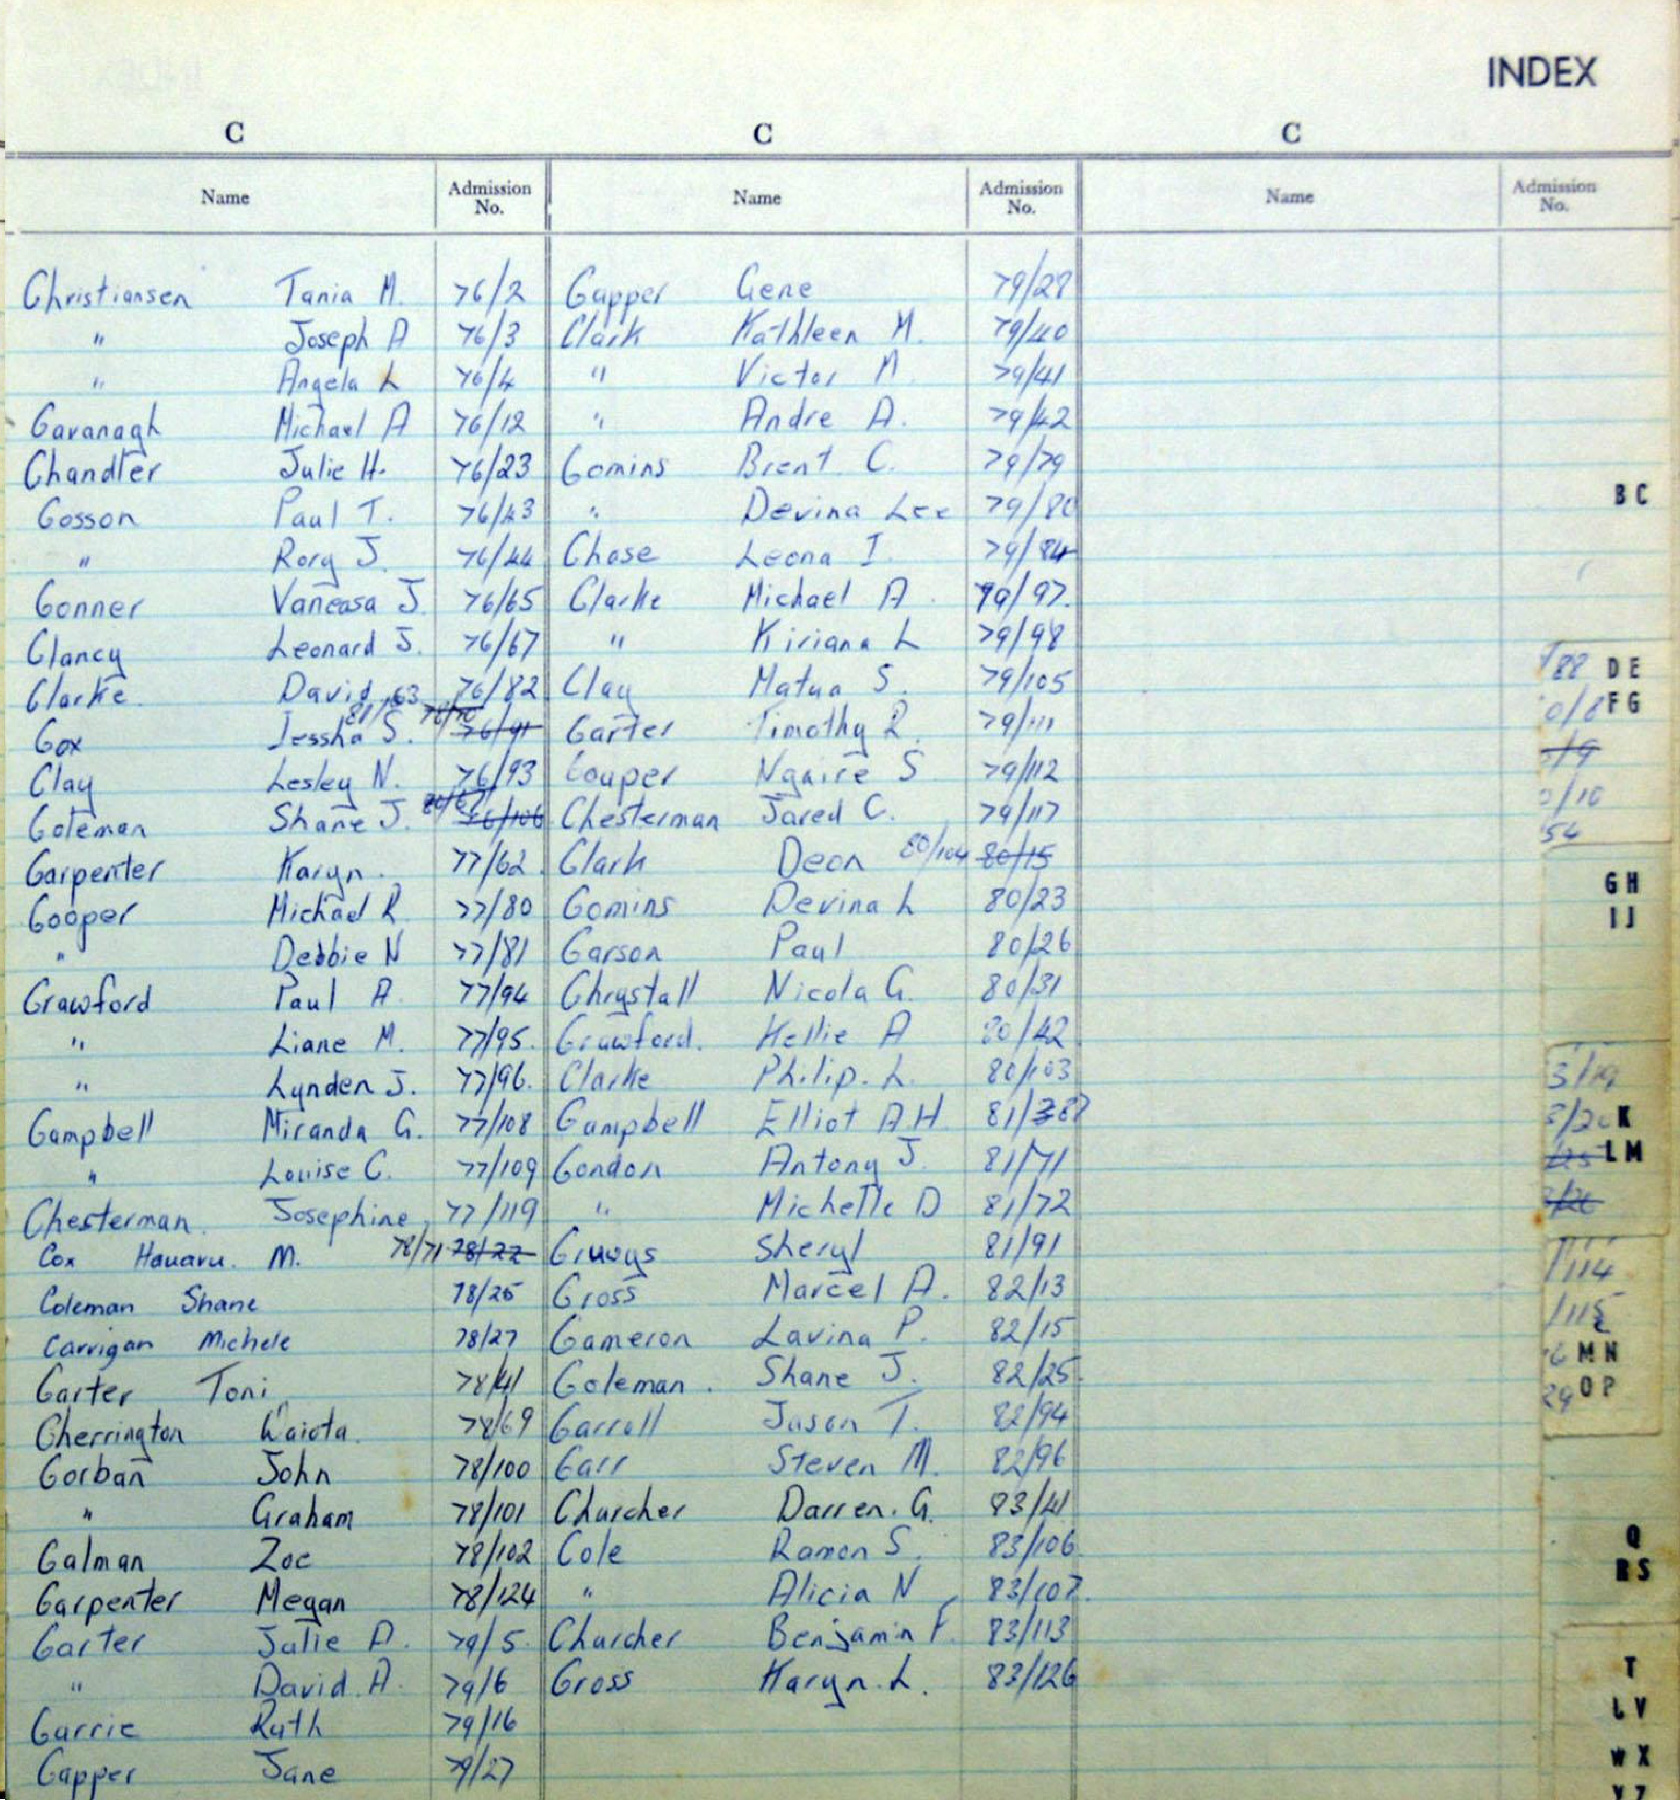 INDEX
C
Name Admission No.
Christiansen Tania M. 76/2
" Joseph A 76/3
" Angela L 76/4
Cavanagh Michael A 76/12
Chandler Julie H. 76/23
Cosson Paul T. 76/43
" Rory J. 76/44
Conner Vanessa J. 76/65
Clancy Leonard J. 76/67
Clarke. David 76/82
81/63 78/70
Cox Jessha S. 76/91
Clay Lesley N. 76/93
Coleman Shane J. 80/67 76/106
Carpenter Karyn. 77/62
Cooper Michael R. 77/80
" Debbie N 77/81
Crawford Paul A. 77/94
" Liane M. 77/95.
" Lynden J. 77/96.
Campbell Miranda G. 77/108
" Louise C. 77/109
Chesterman. Josephine 77/119
Cox Hauaru. M. 78/71 78/22
Coleman Shane 78/25
Carrigan Michele 78/27
Carter Toni 78/41
Cherrington Waiota. 78/69
Corban John 78/100
" Graham 78/101
Calman Zoe 78/102
Carpenter Megan 78/124
Carter Julie A. 79/5
" David A. 79/6
Carrie Ruth 79/16
Capper Jane 79/27
C
Name Admission No.
Capper Gene 79/28
Clark Kathleen M. 79/40
" Victor M 79/41
" Andre A. 79/42
Comins Brent C. 79/79
" Devina Lee 79/80
Chase Leona I. 79/84
Clarke Michael A. 79/97.
" Kiriana L 79/98
Clay Matua S. 79/105
Carter Timothy R. 79/111
Couper Ngaire S 79/112
Chesterman Jared C. 79/117
Clark Deon 80/104 80/15
Comins Devina L 80/23
Carson Paul 80/26
Chrystall Nicola G. 80/31
Crawford. Kellie A 80/42
Clarke Philip. L. 80/103
Campbell Elliot A.H. 81/387
Condon Antony J. 81/71
" Michelle D 81/72
Sheryl 81/91
Cross Marcel A. 82/13
Cameron Lavina P. 82/15
Coleman. Shane J. 82/25
Carroll Jason T. 82/94
Carr Steven M. 82/96
Churcher Darren. G. 83/41
Cole Ramon S. 83/106
" Alicia N 83/107.
Churcher Benjamin F. 83/113
Cross Karyn. L. 83/126
C
Name Admission No.
B C
D E
F G
0/10
54
G H
I J
3/19
K
L M
/114
/115
M N
29 O P
Q
R S
T
W X
Y Z